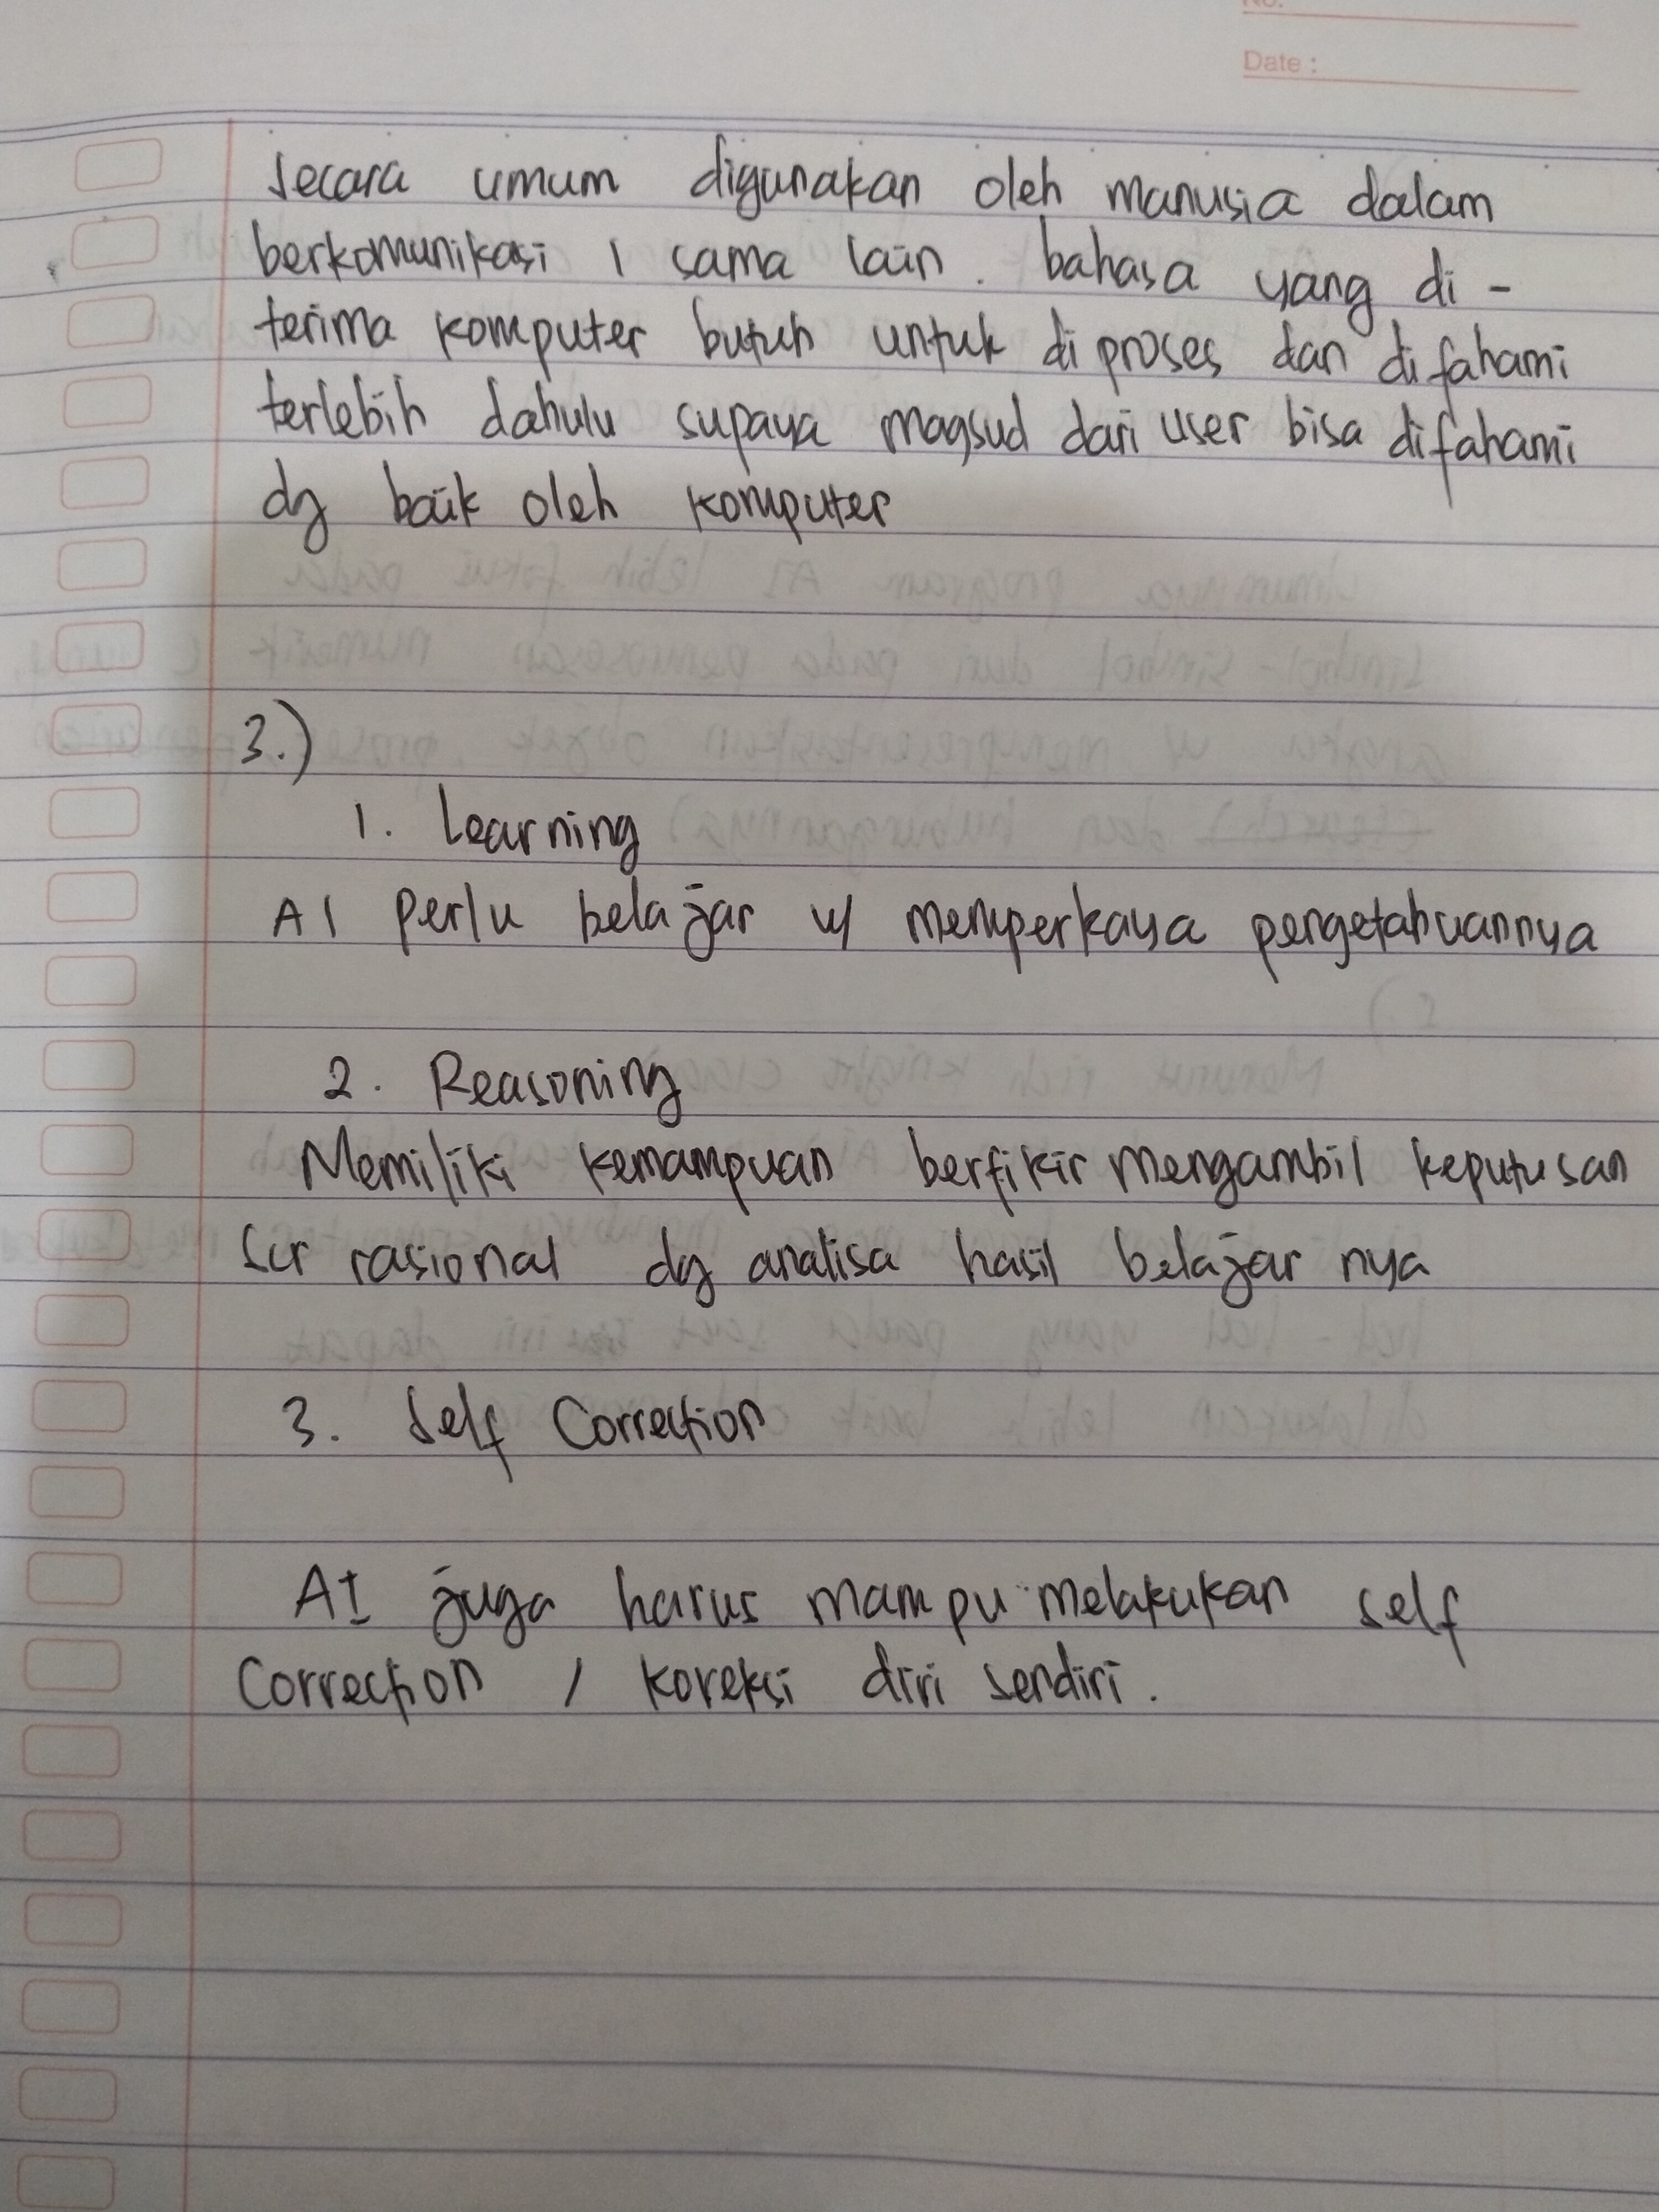 No.
Date :
Secara umum digunakan oleh manusia dalam
berkomunikasi 1 sama lain. bahasa yang di-
terima komputer butuh untuk di proses dan difahami
terlebih dahulu supaya maqsud dari user bisa difahami
dg baik oleh komputer
3.)
1. Learning
AI perlu belajar u/ memperkaya pengetahuannya
2. Reasoning
Memiliki kemampuan berfikir mengambil keputusan
scr rasional dg analisa hasil belajar nya
3. Self Correction
AI juga harus mampu melakukan self
Correction / koreksi diri sendiri.